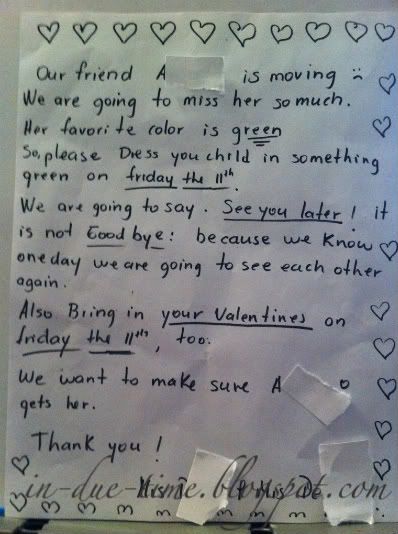 Our friend A is moving :(
We are going to miss her so much.
Her favorite color is green
So, please Dress you child in something
green on friday the 11th.
We are going to say. See you later! it
is not Good bye: because we know
one day we are going to see each other
again.
Also Bring in your Valentines on
friday the 11th, too.
We want to make sure A
gets her.
Thank you!
in-due-time.blogspot.com